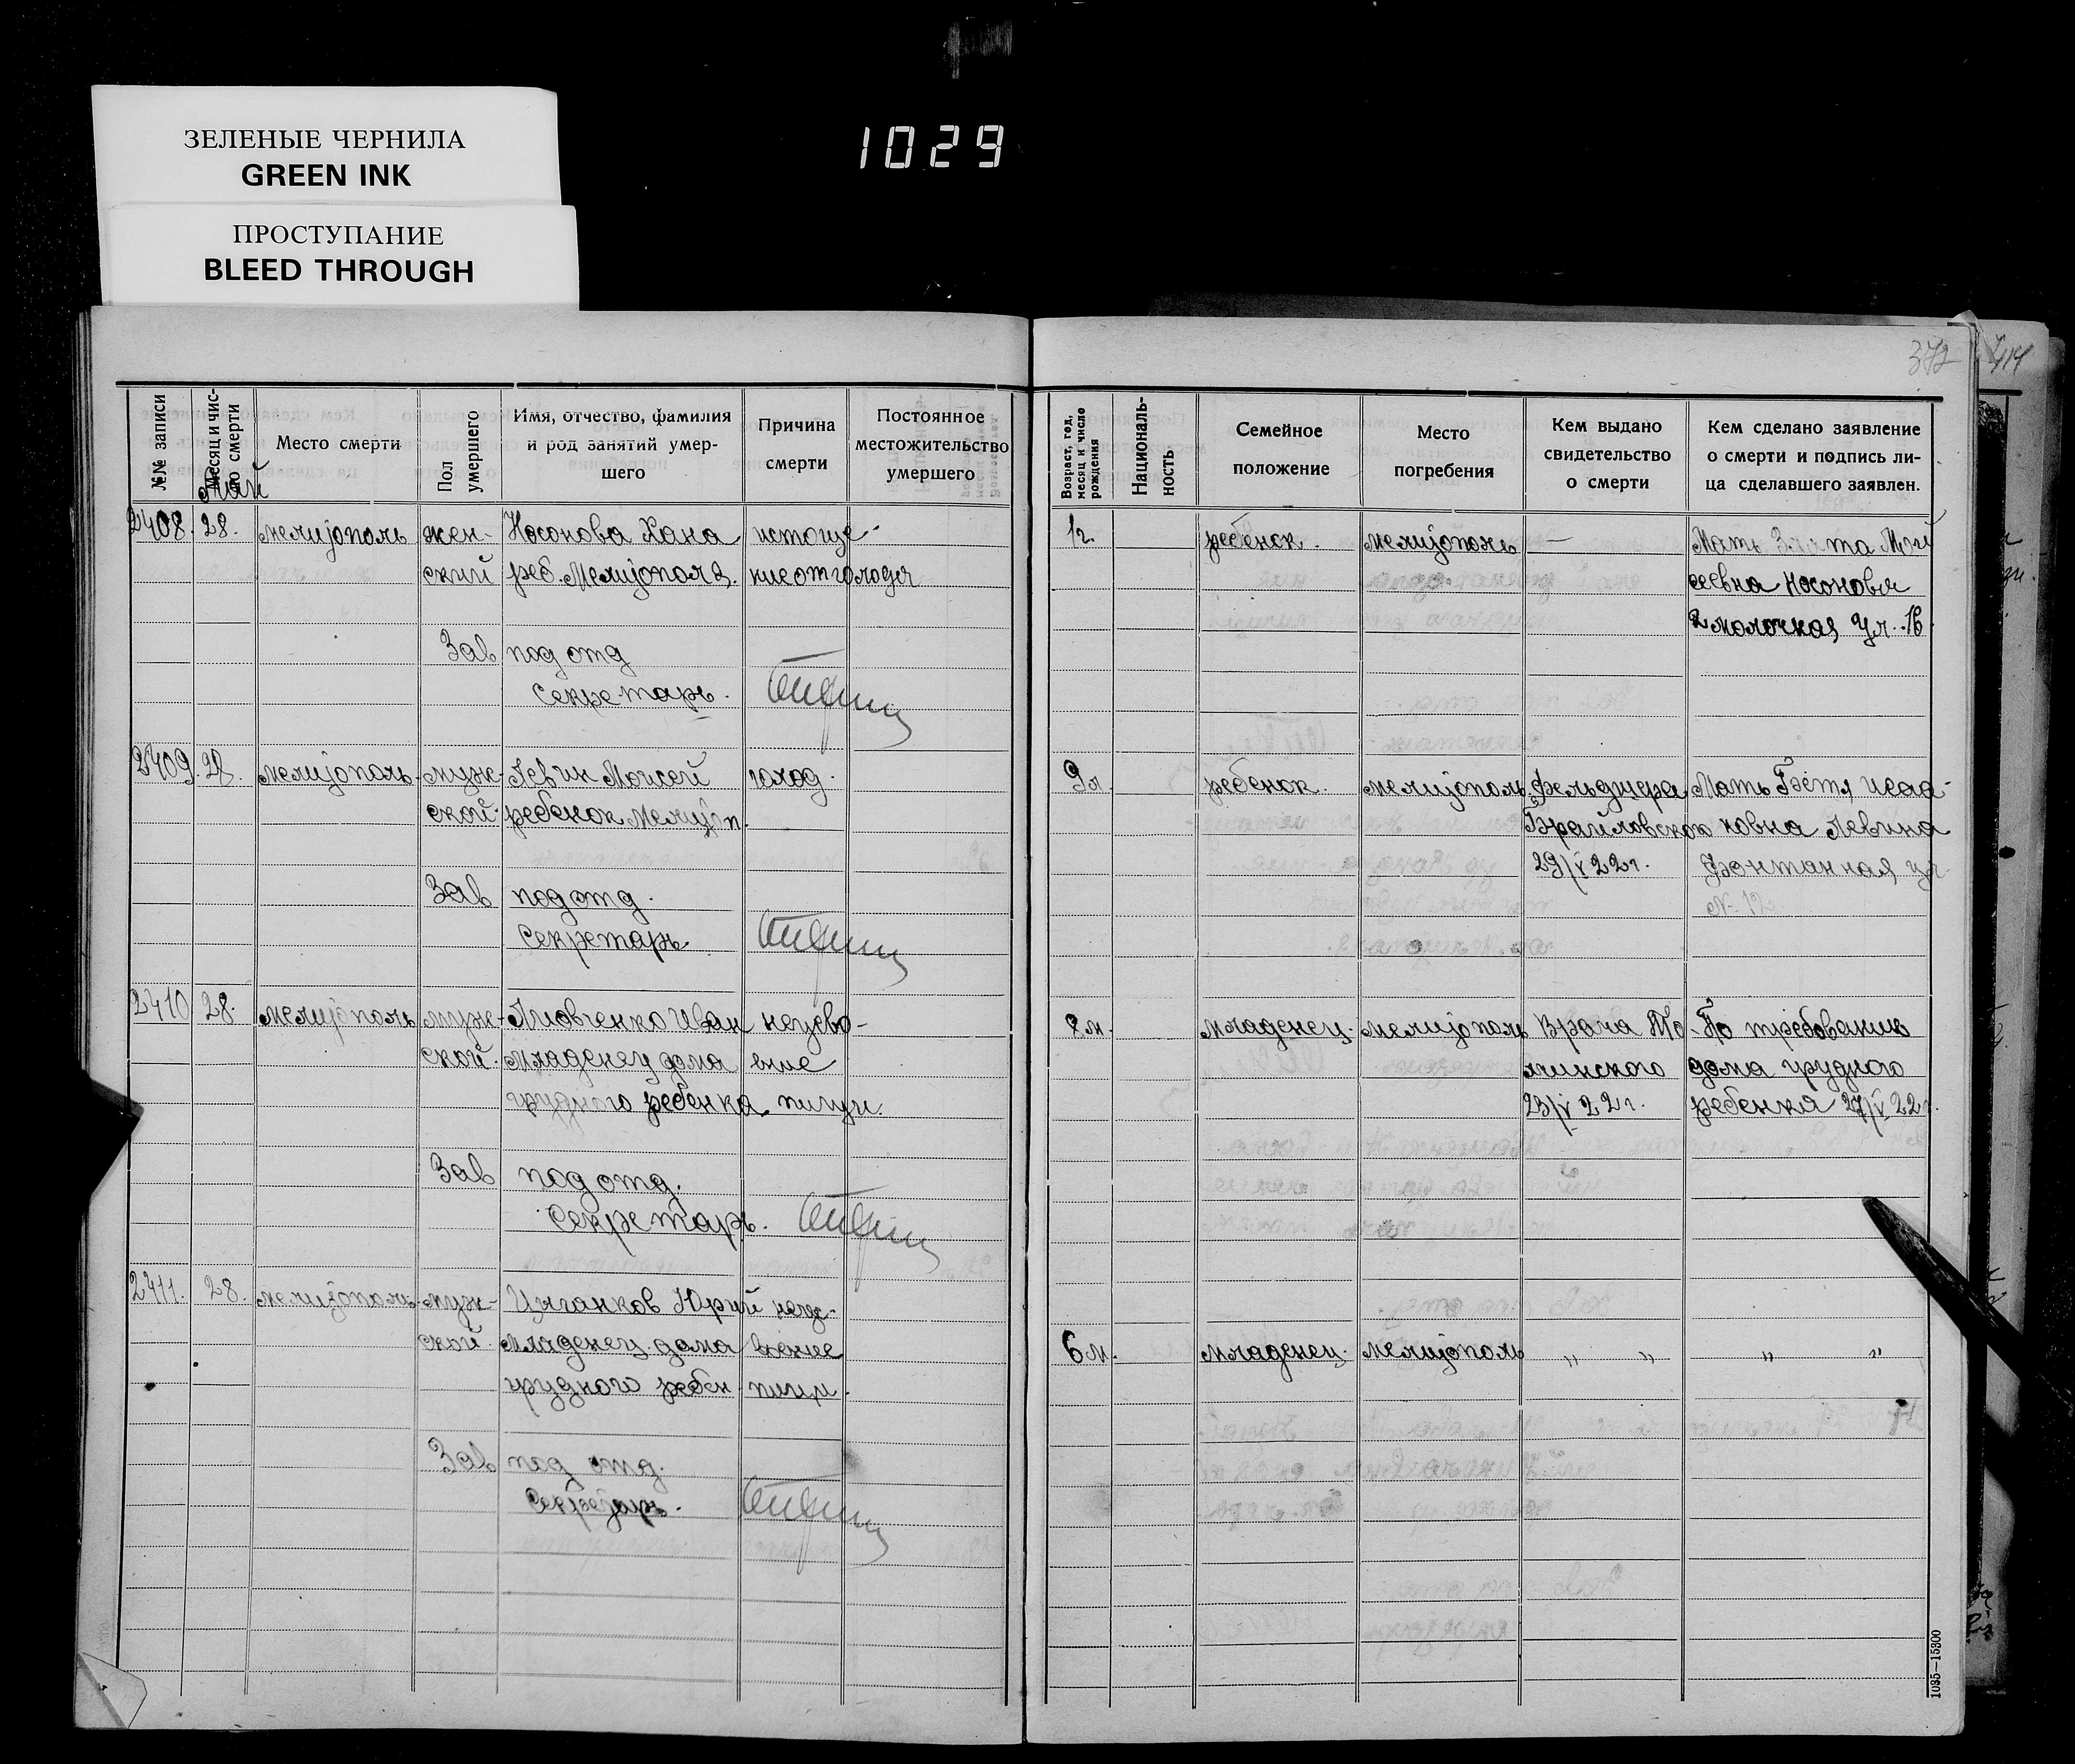 1029
ЗЕЛЕНЫЕ ЧЕРНИЛА
GREEN INK
ПРОСТУПАНИЕ
BLEED THROUGH
372
414
№№ записи
Месяц и чис-
ло смерти
Место смерти
Пол
умершего
Имя, отчество, фамилия
и род занятий умер-
шего
Причина
смерти
Постоянное
местожительство
умершего
Возраст, год,
месяц и число
рождения
Националь-
ность
Семейное
положение
Место
погребения
Кем выдано
свидетельство
о смерти
Кем сделано заявление
о смерти и подпись ли-
ца сделавшего заявлен.
май
2408. 28. мелитополь жен- Носонова Хана истоще- 1г. ребенок. мелитополь — Мать Злата Мой
ский реб. Мелитополя. ние от голода сеевна Носонова
2 молочная ул. 16
Зав под отд
Секретарь.
2409. 28. мелитополь муж- Левин Моисей голод. 9л. ребенок. мелитополь фельдшера Мать Бетя Исаа-
ской. ребенок Мелитоп. Брайловской ковна Левина
29/V 22г. Фонтанная ул.
№ 12
Зав под отд.
Секретарь.
2410 28. мелитополь муж- Иван неусво- 8м. младенец. мелитополь Врача То По требованию
ской. младенец дома ение дома грудного
грудного ребенка. пищи. 23/V 22г. ребенка 27/V 22г.
Зав под отд.
Секретарь.
2411. 28. мелитополь муж- Цыганков Юрий неус-
ской. младенец дома воение 6м. младенец. мелитополь " " " "
грудного ребен пищи.
Зав под отд.
Секретарь.
1035—15300